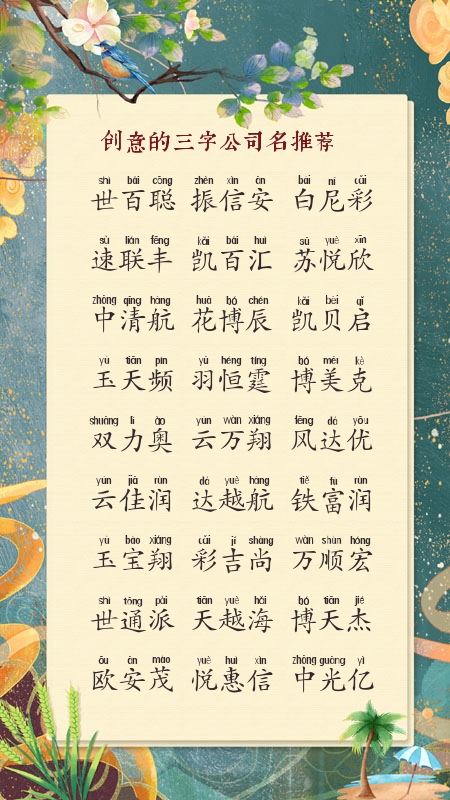 创意的三字公司名推荐
shì bǎi cōng zhèn xìn ān bái ní cǎi
世百聪 振信安 白尼彩
sù lián fēng kǎi bǎi huì sū yuè xīn
速联丰 凯百汇 苏悦欣
zhōng qīng háng huā bó chén kǎi bèi qǐ
中清航 花博辰 凯贝启
yù tiān pín yǔ héng tíng bó měi kè
玉天频 羽恒霆 博美克
shuāng lì ào yún wàn xiáng fēng dá yōu
双力奥 云万翔 风达优
yún jiā rùn dá yuè háng tiě fù rùn
云佳润 达越航 铁富润
yù bǎo xiáng cǎi jí shàng wàn shùn hóng
玉宝翔 彩吉尚 万顺宏
shì tōng pài tiān yuè hǎi bó tiān jié
世通派 天越海 博天杰
ōu ān mào yuè huì xìn zhōng guāng yì
欧安茂 悦惠信 中光亿